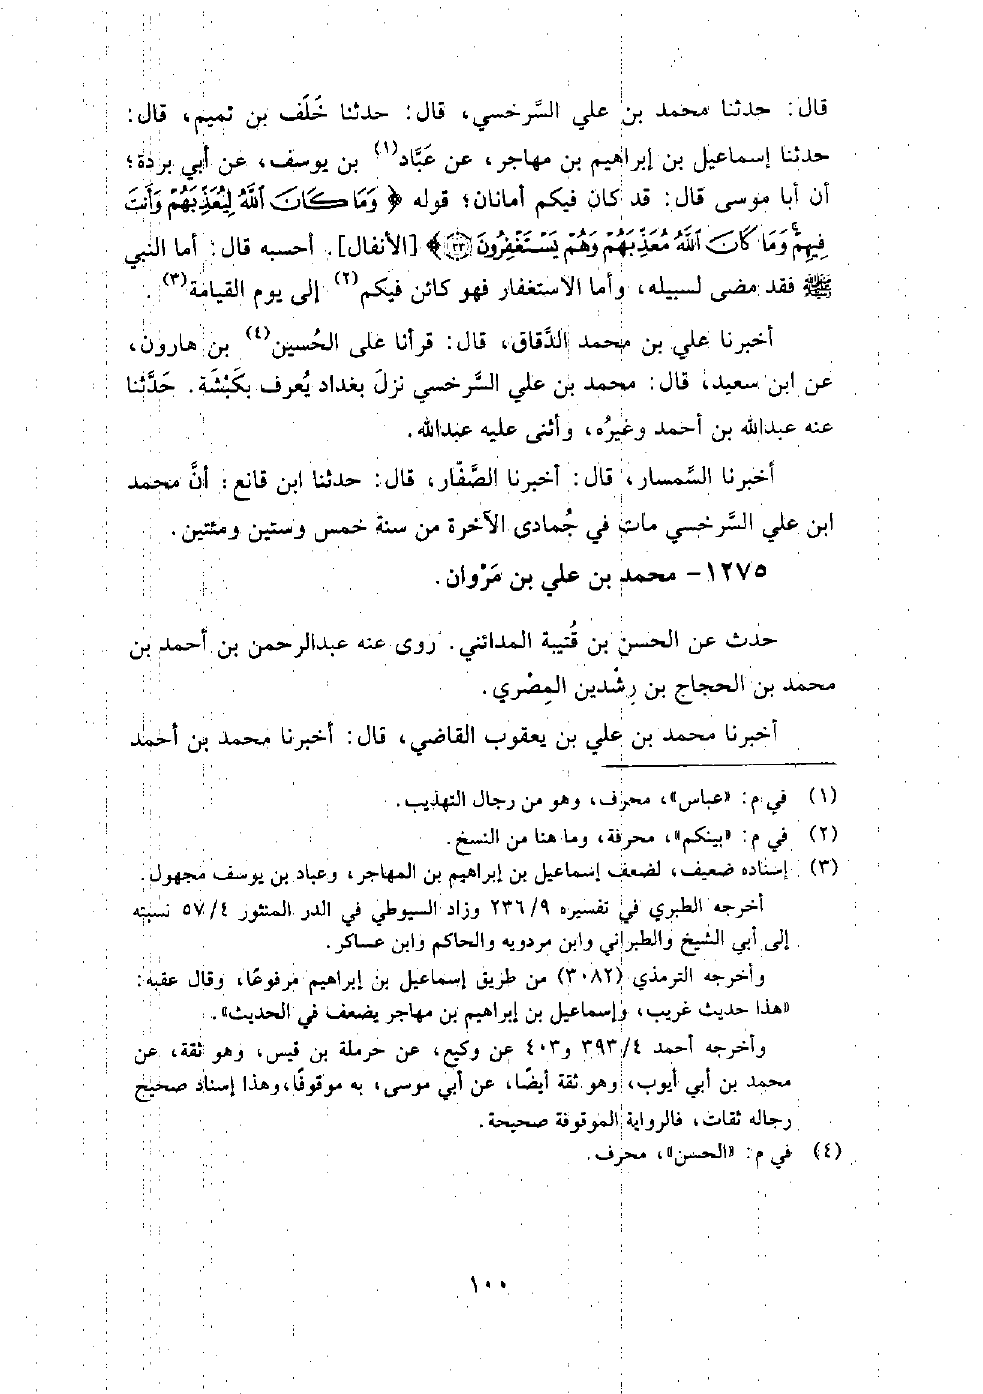 قال: حدثنا محمد بن علي السَّرخسي، قال: حدثنا خَلَف بن تميم، قال:
حدثنا إسماعيل بن إبراهيم بن مهاجر، عن عَبَّاد(١) بن يوسف، عن أبي بردة؛
أن أبا موسى قال: قد كان فيكم أمانان؛ قوله ﴿وَمَا كَانَ ٱللَّهُ لِيُعَذِّبَهُمْ وَأَنتَ
فِيهِمْ وَمَا كَانَ ٱللَّهُ مُعَذِّبَهُمْ وَهُمْ يَسْتَغْفِرُونَ ٣٣﴾ [الأنفال]. أحسبه قال: أما النبي
ﷺ فقد مضى لسبيله، وأما الاستغفار فهو كائن فيكم(٢) إلى يوم القيامة(٣).
أخبرنا علي بن محمد الدَّقاق، قال: قرأنا على الحُسين(٤) بن هارون،
عن ابن سعيد، قال: محمد بن علي السَّرخسي نزلَ بغداد يُعرف بكَبْشَة. حَدَّثنا
عنه عبدالله بن أحمد وغيرُه، وأثنى عليه عبدالله.
أخبرنا السَّمسار، قال: أخبرنا الصَّفّار، قال: حدثنا ابن قانع: أنَّ محمد
ابن علي السَّرخسي مات في جُمادى الآخرة من سنة خمس وستين ومئتين.
١٢٧٥- محمد بن علي بن مَرْوان.
حدث عن الحسن بن قُتيبة المدائني. روى عنه عبدالرحمن بن أحمد بن
محمد بن الحجاج بن رِشْدين المِصْري.
أخبرنا محمد بن علي بن يعقوب القاضي، قال: أخبرنا محمد بن أحمد
(١) في م: «عباس»، محرف، وهو من رجال التهذيب.
(٢) في م: «بينكم»، محرفة، وما هنا من النسخ.
(٣) إسناده ضعيف، لضعف إسماعيل بن إبراهيم بن المهاجر، وعباد بن يوسف مجهول.
أخرجه الطبري في تفسيره ٢٣٦/٩ وزاد السيوطي في الدر المنثور ٥٧/٤ نسبته
إلى أبي الشيخ والطبراني وابن مردويه والحاكم وابن عساكر.
وأخرجه الترمذي (٣٠٨٢) من طريق إسماعيل بن إبراهيم مرفوعًا، وقال عقبه:
«هذا حديث غريب، وإسماعيل بن إبراهيم بن مهاجر يضعف في الحديث».
وأخرجه أحمد ٣٩٣/٤ و٤٠٣ عن وكيع، عن حرملة بن قيس، وهو ثقة، عن
محمد بن أبي أيوب، وهو ثقة أيضًا، عن أبي موسى، به موقوفًا، وهذا إسناد صحيح
رجاله ثقات، فالرواية الموقوفة صحيحة.
(٤) في م: «الحسن»، محرف.
١٠٠